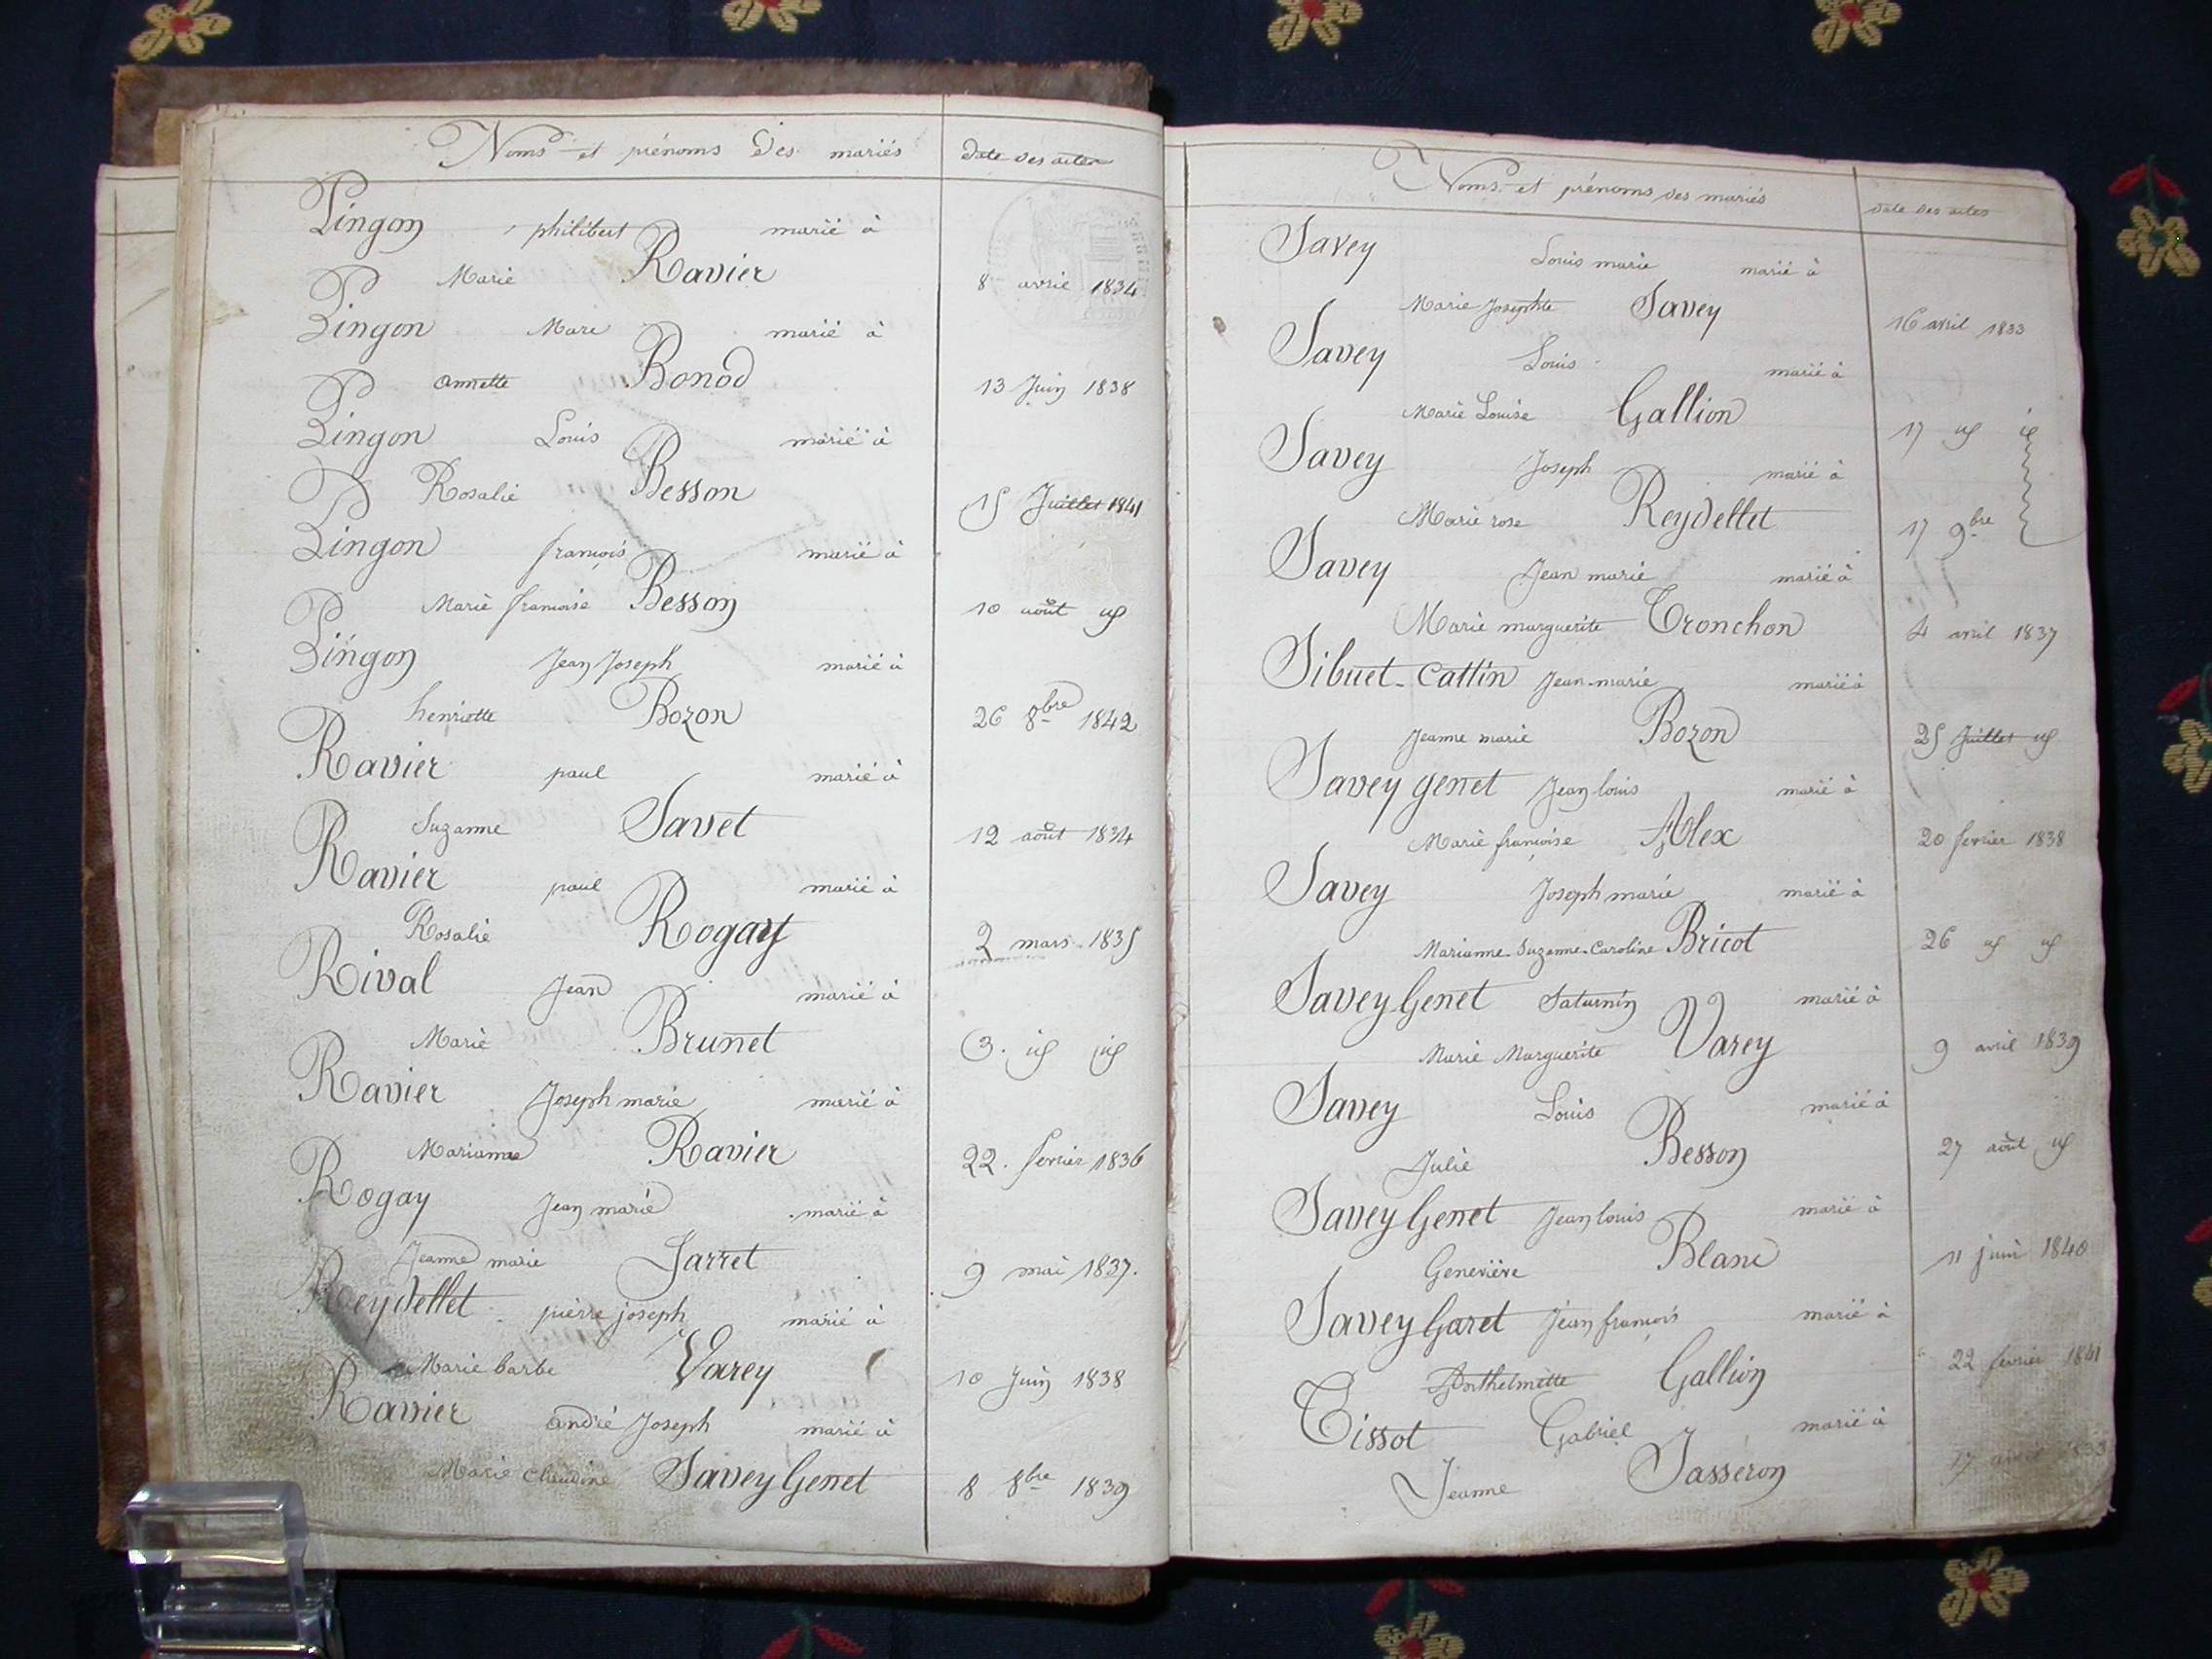 Noms et prénoms des mariés date des actes
Pingon philibert marié à
Marie Ravier 8 avril 1834
Pingon Marc marié à
annette Bonod 13 Juin 1838
Pingon Louis marié à
Rosalie Besson 15 Juillet 1841
Pingon françois marié à
Marie françoise Besson 10 août
Pingon Jean Joseph marié à
henriette Bozon 26 8bre 1842
Ravier paul marié à
Suzanne Savet 12 août 1834
Ravier paul marié à
Rosalie Rogay 2 mars 1835
Rival Jean marié à
Marie Brunet 3
Ravier Joseph marie marié à
Marianne Ravier 22. fevrier 1836
Rogay Jean marie marié à
Jeanne marie Jarret 9 mai 1837.
Reydellet pierre joseph marié à
Marie barbe Varey 10 Juin 1838
Ravier andré Joseph marié à
Marie Claudine Savey Genet 8 8bre 1839
Noms et prénoms des mariés date des actes
Savey Louis marie marié à
Marie Josephte Savey 16 avril 1833
Savey Louis marié à
Marie Louise Gallion 17
Savey Joseph marié à
Marie rose Reydellet 17 9bre
Savey Jean marie marié à
Marie marguerite Tronchon 4 avril 1837
Sibuet-Cattin Jean-marie marié à
Jeanne marie Bozon 25 Juillet
Savey genet Jean louis marié à
Marie françoise Alex 20 fevrier 1838
Savey Joseph marie marié à
Marianne-Suzanne-Caroline Bricot 26
Savey Genet Saturnin marié à
Marie Marguerite Varey 9 avril 1839
Savey Louis marié à
Julie Besson 27 août
Savey Genet Jean louis marié à
Geneviève Blanc 11 juin 1840
Savey Garet Jean françois marié à
Anthelmette Gallion 22 fevrier 1841
Tissot Gabriel marié à
Jeanne Jasseron 17 avril 1833